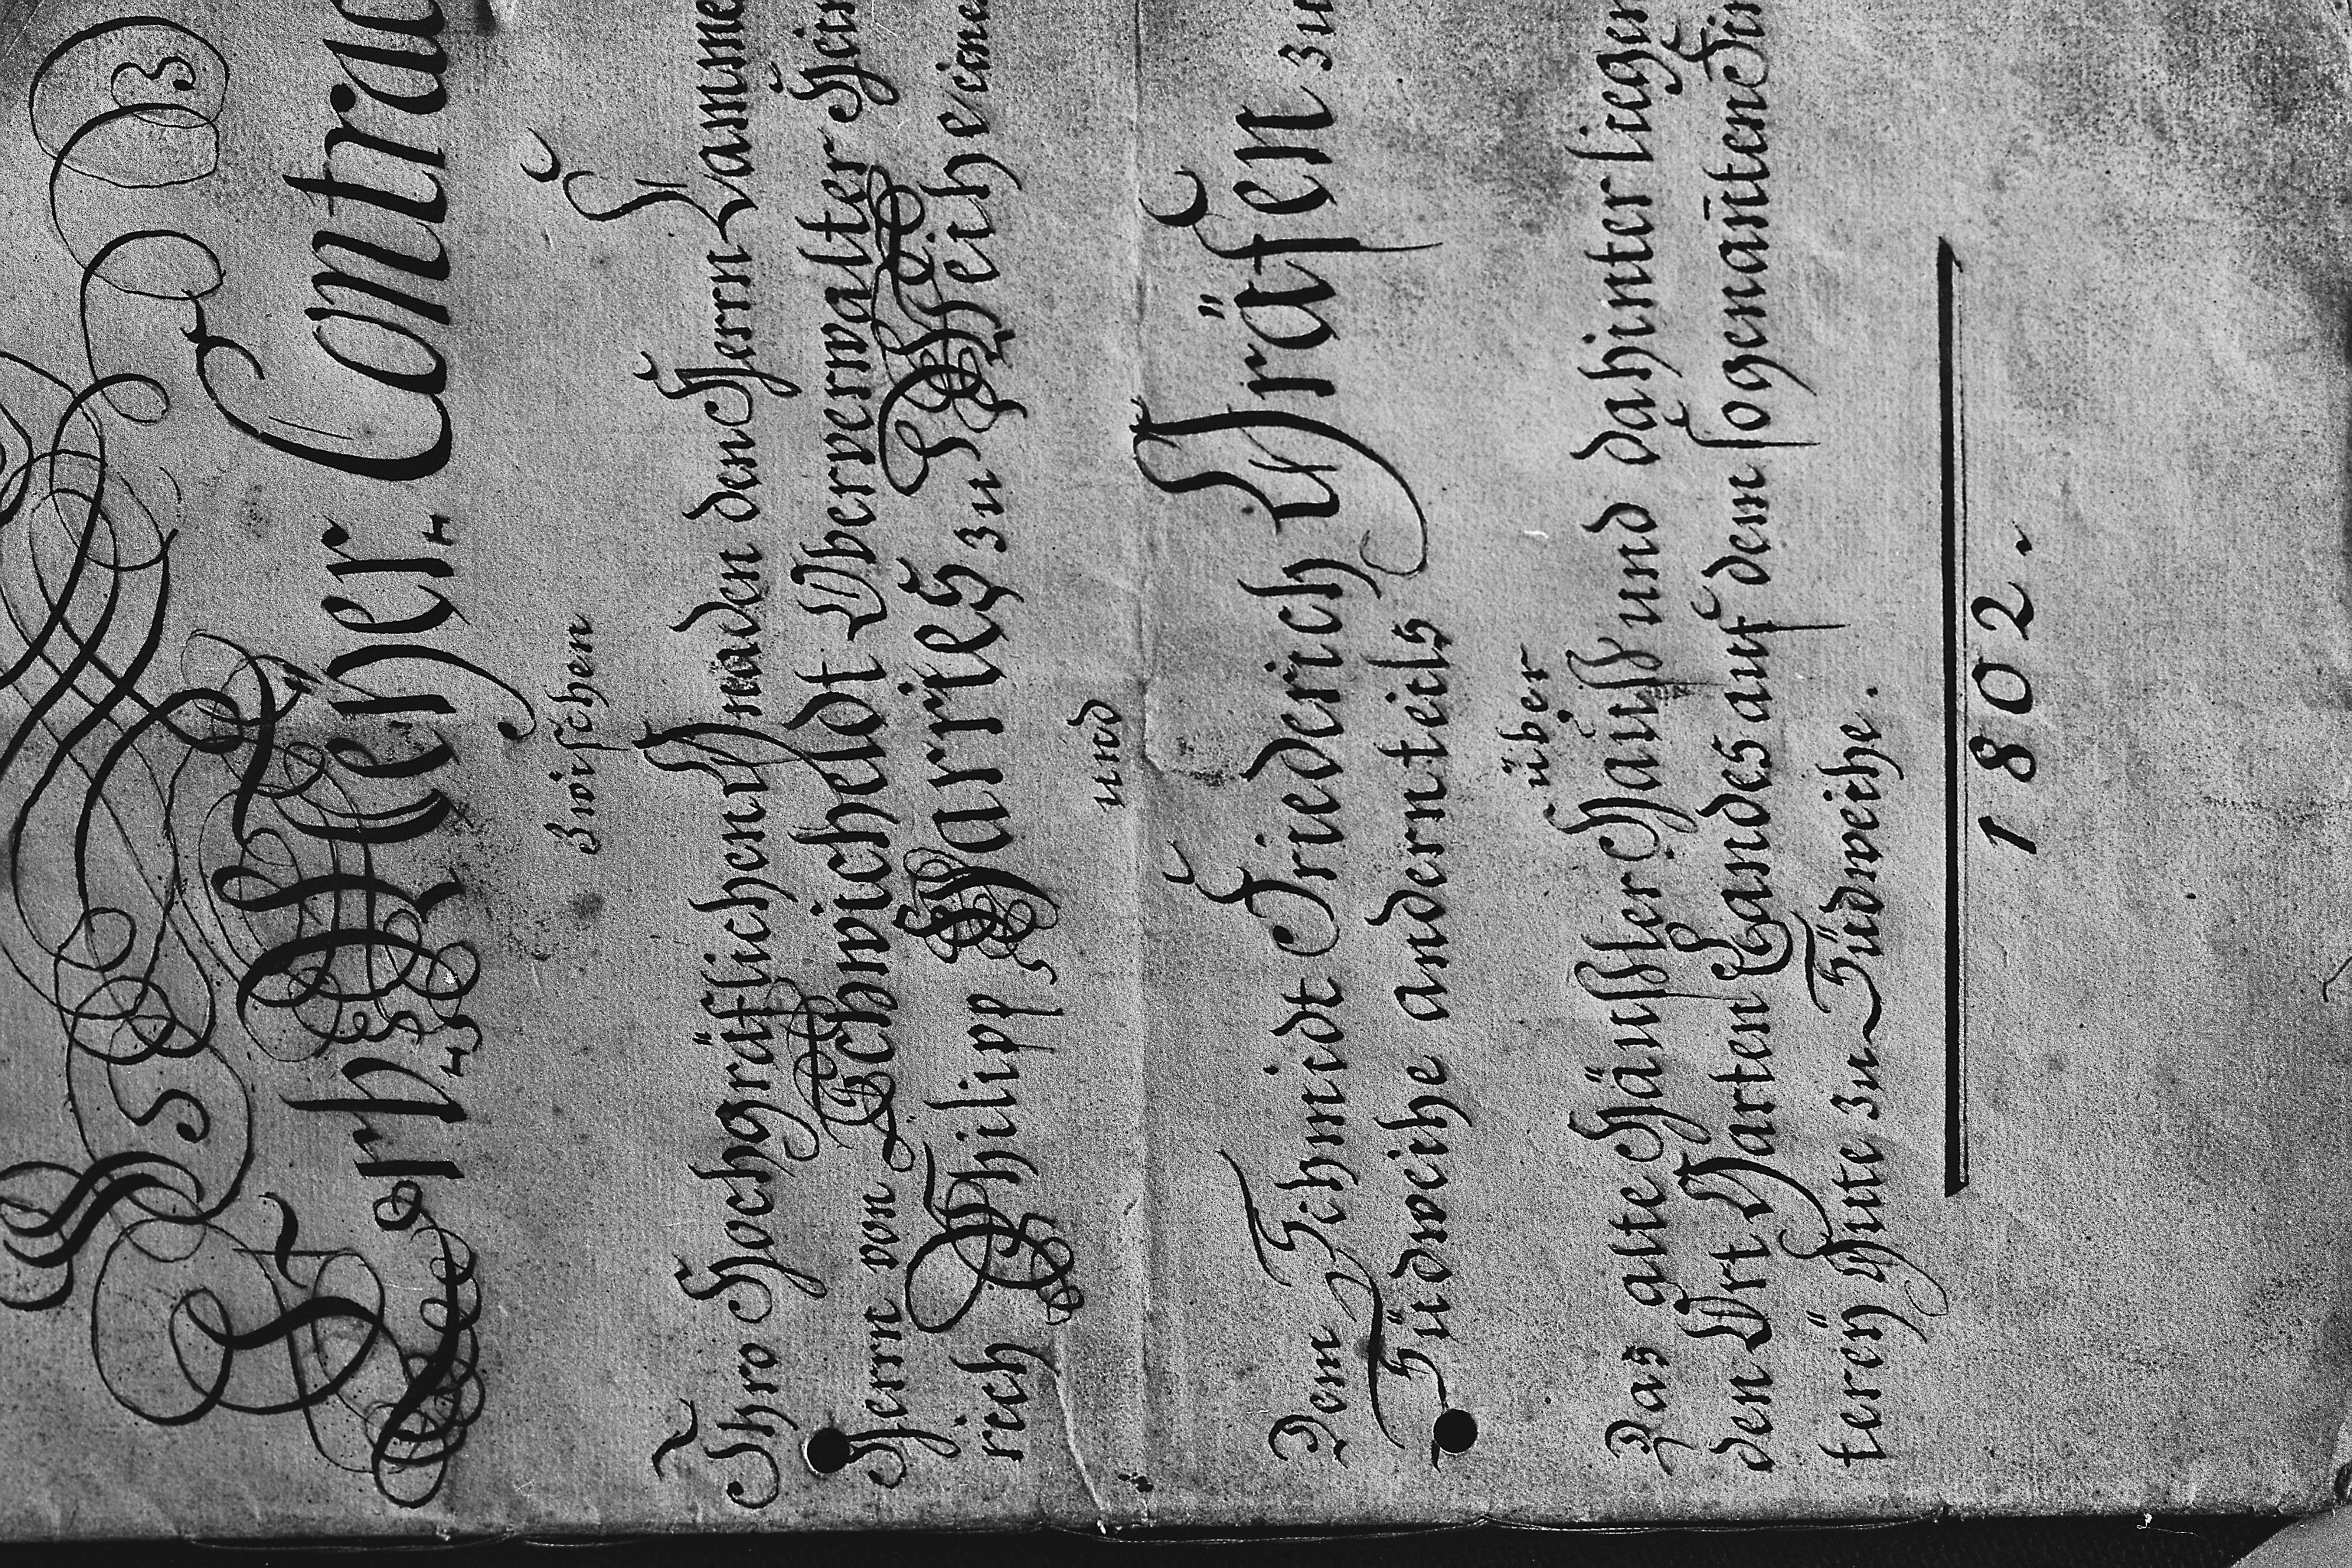 Erb-Meÿer-Contrac
zwischen
Ihro Hochgräflichen Gnaden den Herrn Kamme
Herrn von Schwicheldt Oberverwalter Hein
rich Philipp Harries zu Weihe eine
und
Dem Schmidt Friederich Gräfen zu
Südweihe andernteils
über
Das alte Häusler Hauss und dahinter liegen
den Ort Garten Landes auf dem sogenanten Din
tereÿ Gute zu Südweihe.
1802.